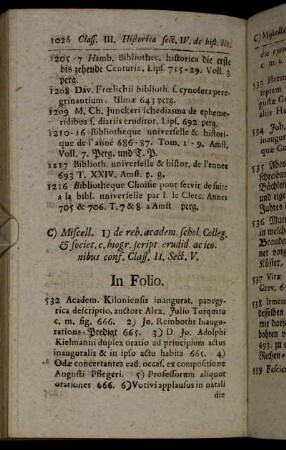 1026 Class. III. Historica sect. IV. de hist. lit.
1205-7 Hamb. Bibliothec. historica die erste
bis zehende Centuria, Lips. 715-29. Voll. 3
perg.
1208 Dav. Frœlichii biblioth. s. cynosura pere-
grinantium. Ulmæ 643 perg.
1209 M. Ch. Junckeri schediasma de epheme-
ridibus s. diariis eruditor. Lips. 692 perg.
1210-16 Bibliotheque universelle & histori-
que de l'anné 686-87. Tom. 1-9. Amst.
Voll. 7. Perg. und T. P.
1217 Biblioth. universelle & histor. de l'annes
693 T. XXIV. Amst. p. g.
1216 Bibliotheque Choisie pour servir de suite
a la bibl. universelle par I. le Clerc. Annes
705 & 706. T. 7 & 8. a Amst perg.
C) Miscell. 1) de reb. academ. schol. Colleg.
& societ. c. biogr. script. erudid. ac ico-
nibus conf. Class. II. Sect. V.
In Folio.
532 Academ. Kiloniensis inaugurat. panegy-
rica descriptio, auctore Alex. Julio Torquato
c. m. fig. 666. 2) Jo. Reinboths Inaugu-
rations-Predigt 665. 3) D. Jo. Adolphi
Kielmanni duplex oratio ad principium actus
inauguralis & in ipso actu habita 665. 4)
Odæ concertantes ead. occas. ex compositione
Augusti Pflegeri. 5) Professorum aliquot
orationes 666. 6) Votivi applausus in natali
die